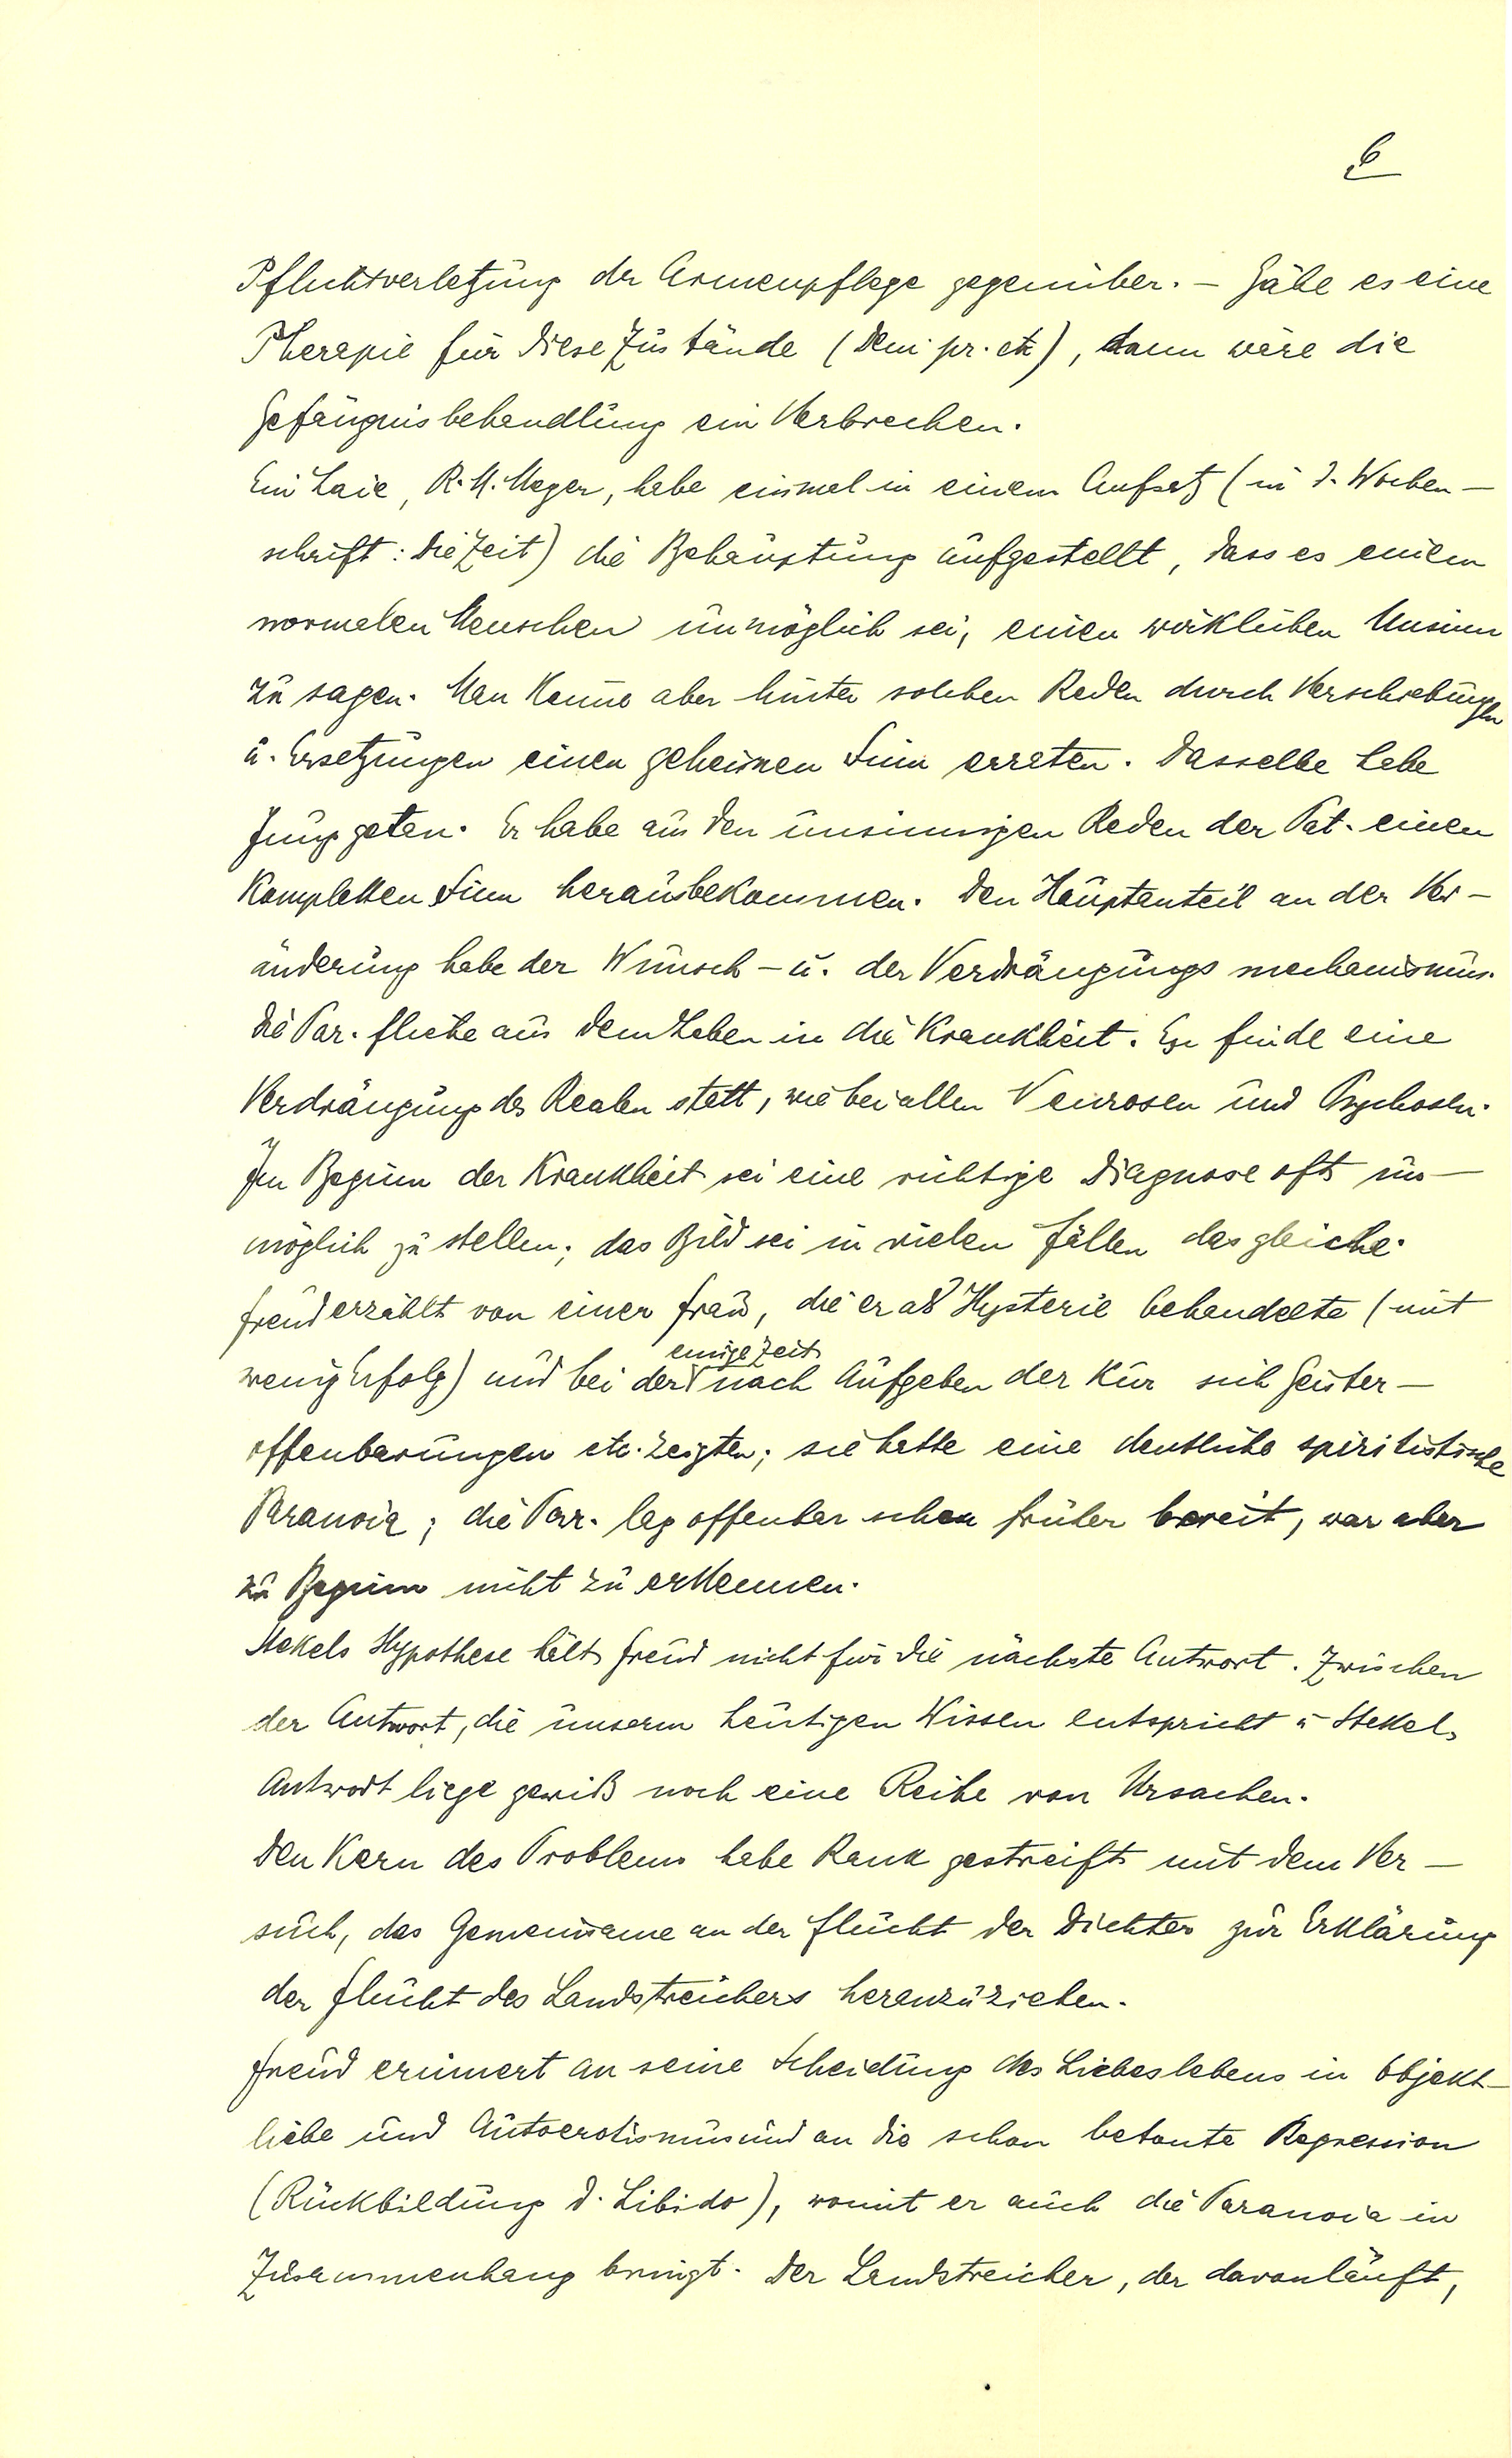 6
Pflichtverletzung der Armenpflege gegenüber. – Gäbe es eine
Therapie für diese Zustände (Dem. pr. etc), dann wäre die
Gefängnisbehandlung ein Verbrechen.
Ein Laie, R. M. Meyer, habe einmal in einem Aufsatz (in d. Wochen–
schrift: die Zeit) die Behauptung aufgestellt, dass es einem
normalen Menschen unmöglich sei, einen wirklichen Unsinn
zu sagen. Man könne aber hinter solchen Reden durch Verschiebungen
u. Ersetzungen einen geheimen Sinn erraten. Dasselbe habe
Jung getan. Er habe aus den unsinnigen Reden der Pat. einen
kompletten Sinn herausbekommen. Den Hauptanteil an der Ver–
änderung habe der Wunsch – u. der Verdrängungsmechanismus.
Die Par. fliehe aus dem Leben in die Krankheit. Es finde eine
Verdrängung des Realen statt, wie bei allen Neurosen und Psychosen.
Im Beginn der Krankheit sei eine richtige Diagnose oft un–
möglich zu stellen; das Bild sei in vielen Fällen das gleiche.
Freud erzählt von einer Frau, die er als Hysterie behandelte (mit
einige Zeit
wenig Erfolg) und bei der nach Aufgeben der Kur sich Geister–
offenbarungen etc. zeigten; sie hatte eine deutliche spiritistische
Paranoia; die Par. lag offenbar schon früher bereit, war aber
zu Beginn nicht zu erkennen.
Stekels Hypothese hält Freud nicht für die nächste Antwort. Zwischen
der Antwort, die unserm heutigen Wissen entspricht u. Stekels
Antwort liege gewiß noch eine Reihe von Ursachen.
Den Kern des Problems habe Rank gestreift mit dem Ver–
such, das Gemeinsame an der Flucht der Dichter zur Erklärung
der Flucht des Landstreichers heranzuziehen.
Freud erinnert an seine Scheidung des Liebeslebens in Objekt–
liebe und Autoerotismus und an die schon betonte Regression
(Rückbildung d. Libido), womit er auch die Paranoia in
Zusammenhang bringt. Der Landstreicher, der davonläuft,